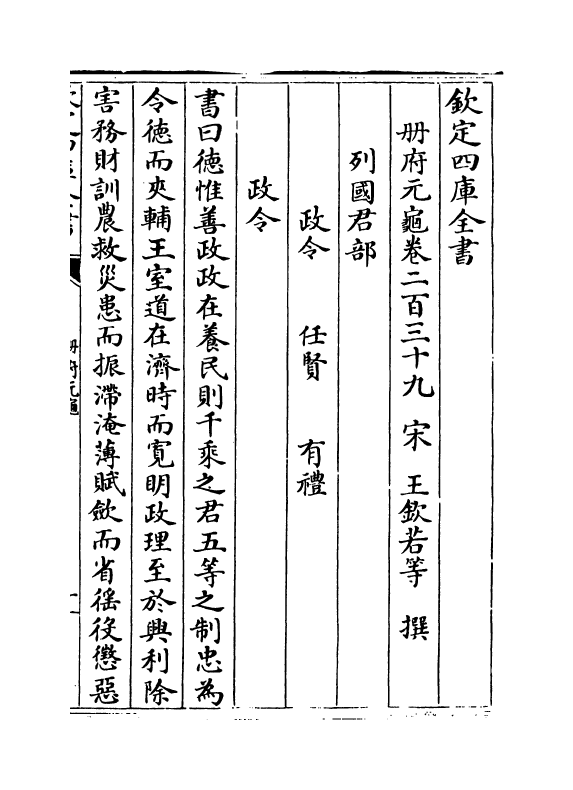 欽定四庫全書
册府元龜卷二百三十九　宋　王欽若等　撰
列國君部
政令　任賢　有禮
政令
書曰德惟善政政在養民則千乘之君五等之制忠為
令徳而夾輔王室道在濟時而寛明政理至於興利除
害務財訓農救災患而振滯淹薄賦斂而省徭役懲惡
册府元龜